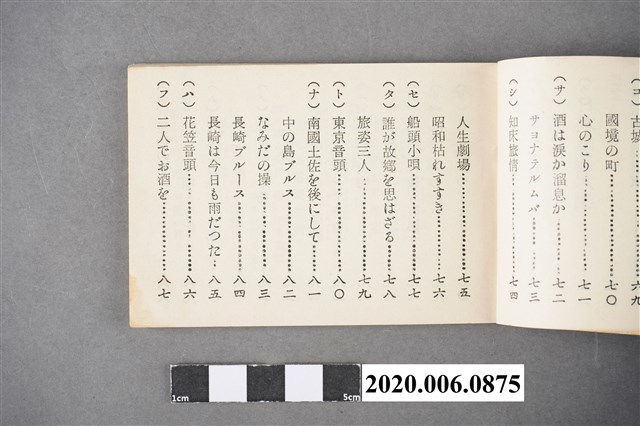 （コ）古城……六九
國境の町……七〇
心のこり……七一
（サ）酒は涙か溜息か……七二
サヨナテルムパ……七三
（シ）知床旅情……七四
人生劇場……七五
昭和枯れすすき……七六
（セ）船頭小唄……七七
（タ）誰が故郷を思はざる……七八
旅姿三人……七九
（ト）東京音頭……八〇
（ナ）南國土佐を後にして……八一
中の島ブルス……八二
なみだの操……八三
長崎ブルース……八四
長崎は今日も雨だつた……八五
（ハ）花笠音頭……八六
（フ）二人でお酒を……八七
1cm
5cm
2020.006.0875